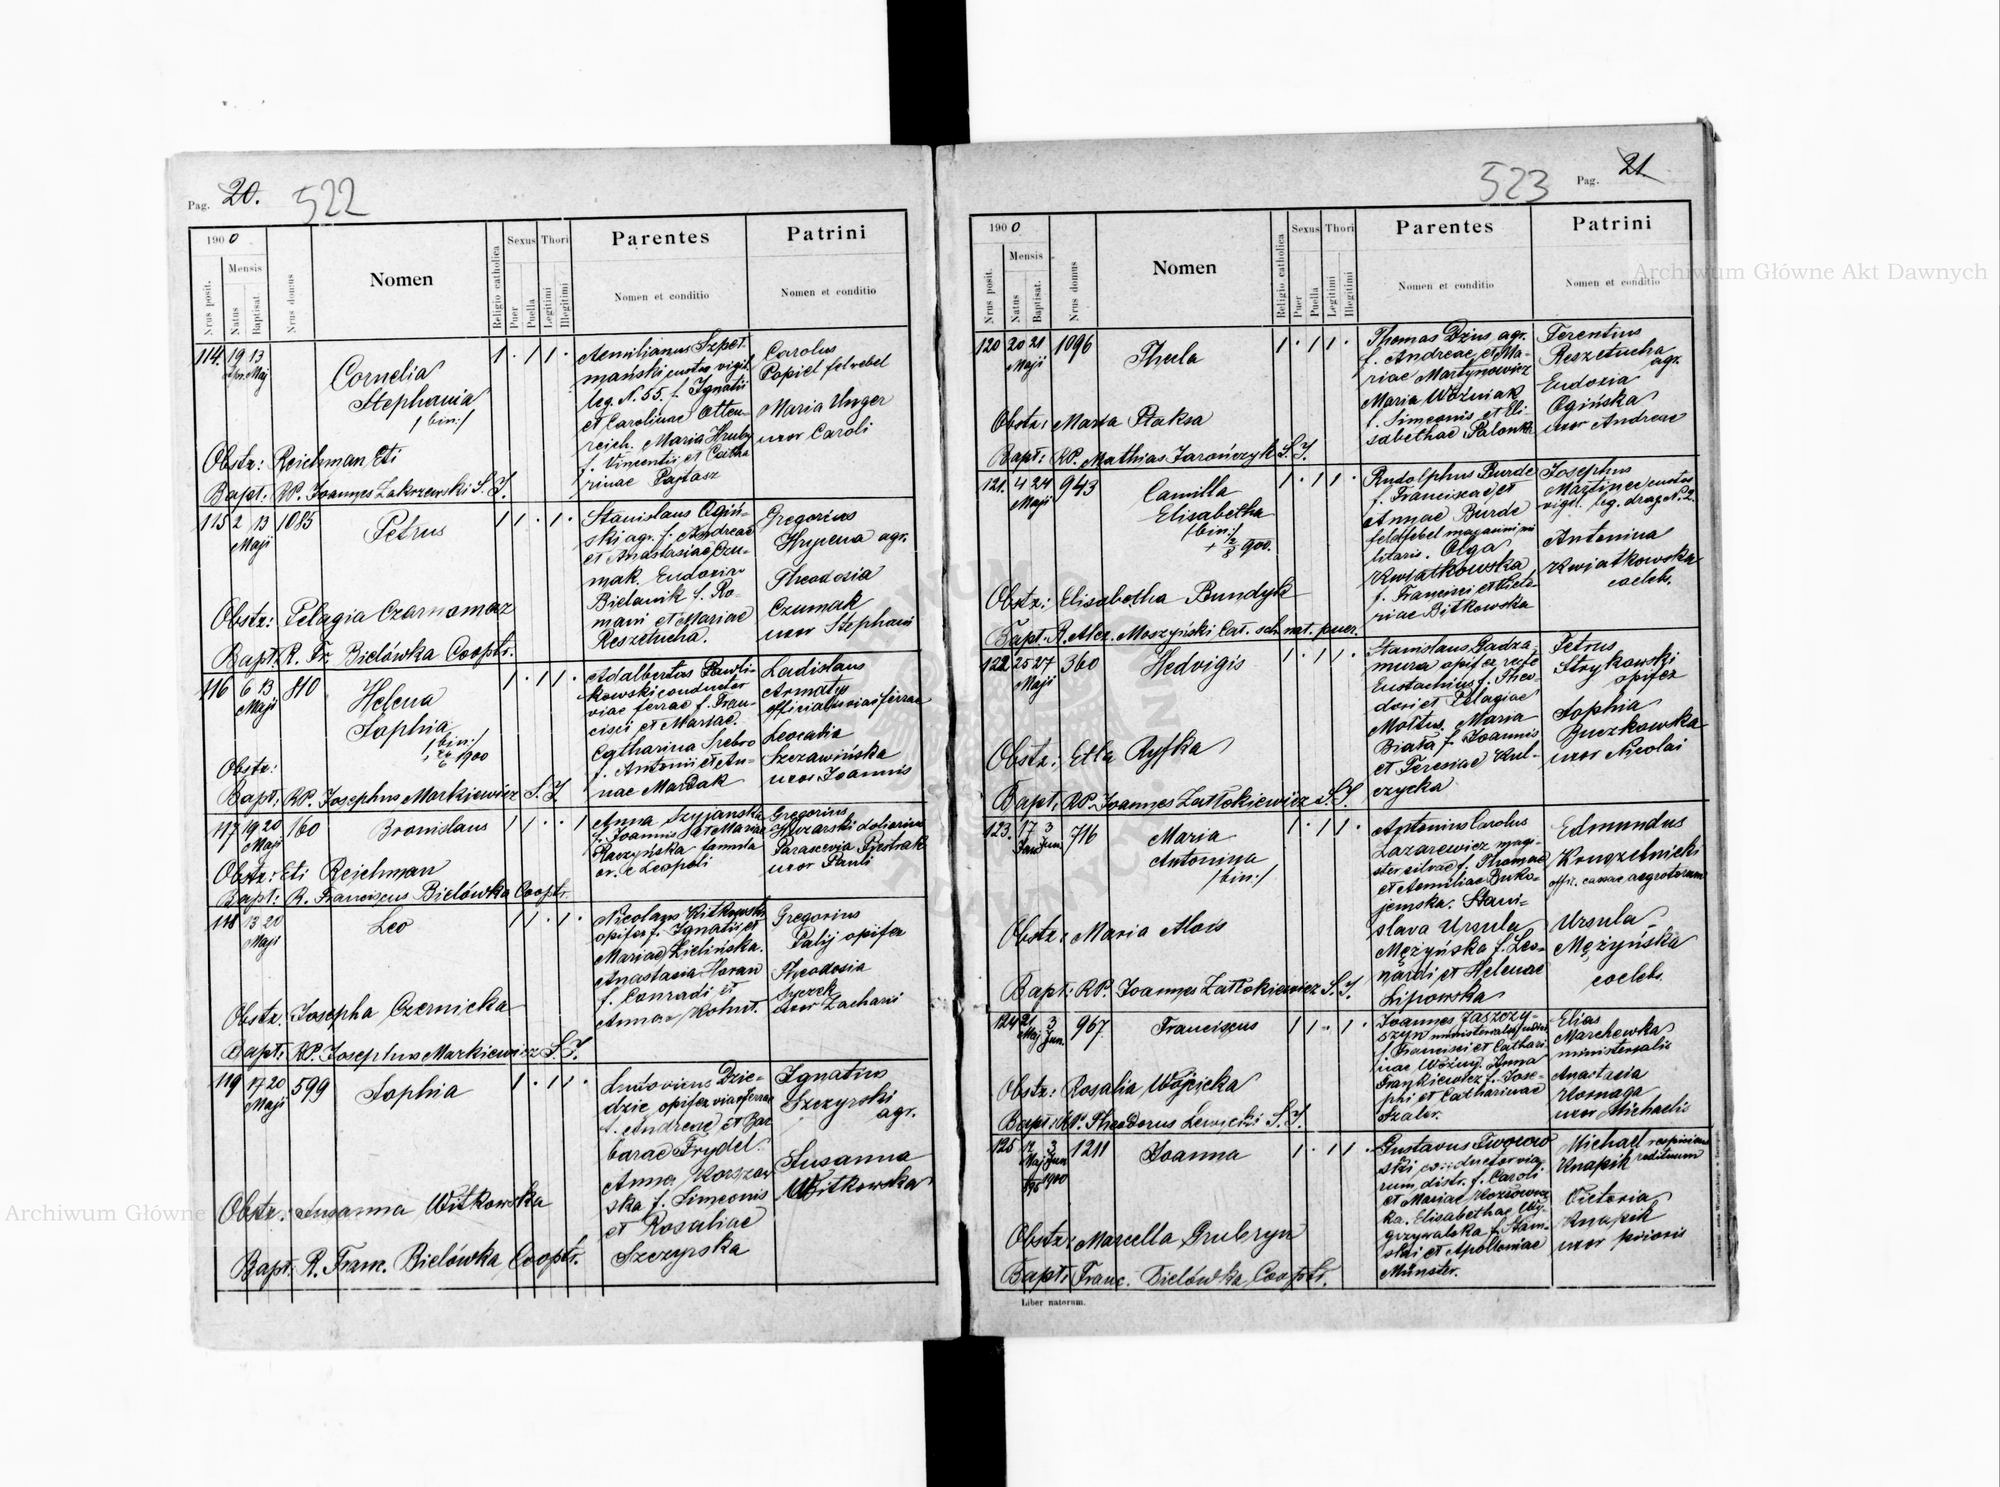 Pag. 20. 522
1900
Nrus posit.
Mensis
Natus
Baptisat.
Nrus domus
Nomen
Religio catholica
Sexus
Puer
Puella
Thori
Legitimi
Illegitimi
Parentes
Nomen et conditio
Patrini
Nomen et conditio
114. 19 13
Apr. Maj
Cornelia
Stephania
/bin:/
Obstr: Reichman Eti
Bapt: RP. Joannes Zakrzewski S. J.
1 . 1 1 .
Aemilianus Szpet-
mański custos vigil.
leg. N. 55. f. Ignatii
et Carolinae Otten-
reich. Maria Hruby
f. Vincentii et Catha
rinae Pajtasz
Carolus
Popiel felwebel
Maria Unger
uxor Caroli
115 2 13 1085
Maji
Petrus
Obstr: Pelagia Czarnomaz
Bapt. R. Fr. Bielówka Cooptr.
1 1 . 1 .
Stanislaus Ogiń-
ski agr. f. Andreae
et Anastasiae Czu-
mak. Eudoxia
Bielanik f. Ro-
mani et Mariae
Reszetucha.
Gregorius
Hrycena agr.
Theodosia
Czumak
uxor Stephani
116 6 13 810
Maji
Helena
Sophia
/bin:/
1900
Obstr:
Bapt: RP. Josephus Markiewicz S. J.
1 . 1 1 .
Adalbertus Pawli-
kowski conductor
viae ferrae f. Fran-
cisci et Mariae.
Catharina Srebro
f. Antonii et An-
nae Marzak
Ladislaus
Armatys
officialis viae ferrae
Leocadia
Szczawińska
uxor Joannis
117 19 20 160
Maji
Bronislaus
Obstr: Eti Reichman
Bapt: R. Franciscus Bielówka Cooptr.
1 1 . . 1
Anna Szyjanska
f. Joannis et Mariae
Raczyńska famula
or. e Leopoli
Gregorius
Huzarski doliarius
Parascevia Pjestrak
uxor Pauli
118 13 20
Maji
Leo
Obstr: Josepha Czernicka
Bapt: RP. Josephus Markiewicz S. J.
1 1 . 1 .
Nicolaus Witkowski
opifex f. Ignatii et
Mariae Zielińska.
Anastasia Horan
f. Conradi et
Annae Kohut.
Gregorius
Palij opifex
Theodosia
Syczek
uxor Zachari
119 17 20 599
Maji
Sophia
Obstr: Susanna Witkowska
Bapt: R. Franc. Bielówka Cooptr.
1 . 1 1 .
Ludovicus Dzie-
dzic opifex viae ferrae
f. Andreae et Bar
barae Frydel.
Anna Korszow
ska f. Simeonis
et Rosaliae
Szczyrska
Ignatius
Szczyrski
agr.
Susanna
Witkowska
523 Pag. 21.
1900
Nrus posit.
Mensis
Natus
Baptisat.
Nrus domus
Nomen
Religio catholica
Sexus
Puer
Puella
Thori
Legitimi
Illegitimi
Parentes
Nomen et conditio
Patrini
Nomen et conditio
120 20 21 1096
Maji
Thecla
Obstr: Maria Ptaksa
Bapt: RP. Mathias Jarończyk S. J.
1 . 1 1 .
Thomas Dzius agr.
f. Andreae et Ma-
riae Martynowicz
Maria Woźniak
f. Simeonis et Eli-
sabethae Palonka
Terentius
Reszetucha
agr.
Eudoxia
Ogińska
uxor Andreae
121. 4 24 943
Maji
Camilla
Elisabetha
/bin:/
+ 2/8 900.
Obstr: Elisabetha Bundyk
Bapt. R. Alex. Moszyński Cat. sch. nat. puer.
1 . 1 1 .
Rudolphus Burde
f. Francisca et
Annae Burde
feldfebel magazini mi
litaris. Olga
Kwiatkowska
f. Francisci et Vicla
riae Bitkowska
Josephus
Martinec custos
vigil. leg. drag. N. 2.
Antonina
Kwiatkowska
coeleb.
122 25 27 360
Maji
Hedvigis
Obstr: Etla Ryfka
Bapt. RP. Joannes Zatłokiewicz S. J.
1 . 1 1 .
Stanislaus Gadza-
mura opifex recte
Eustachius f. Theo-
dori et Pelagiae
Mottus. Maria
Biała f. Joannis
et Teresiae Kul-
czycka
Petrus
Strykowski
opifex
Sophia
Buczkowska
uxor Nicolai
123. 17 3 716
Jun.
Maria
Antonina
/bin:/
Obstr: Maria Alois
Bapt: RP. Joannes Zatłokiewicz S. J.
1 . 1 1 .
Antonius Carolus
Lazarewicz magi-
ster silvae f. Thomae
et Aemiliae Buko-
jemska. Stani-
slava Ursula
Mężyńska f. Leo-
nardi et Helenae
Lipowska
Edmundus
Kougzelnicki
offic. cassae aegrotorum
Ursula
Mężyńska
coeleb.
124 21 3 967
Maj Jun.
Franciscus
Obstr: Rosalia Wójcicka
Bapt: RP. Theodorus Lewicki S. J.
1 1 . 1 .
Joannes Jaszczy-
szyn ministerialis judicii
f. Francisci et Cathari
nae Woźny. Anna
Frankiewicz f. Jose-
phi et Catharinae
Szaler.
Elias
Marchewka
ministerialis
Anastasia
Kornaga
uxor Michaelis
125 17 3 1211
Maj Jun.
1900
Joanna
Obstr: Marcella Grubryn
Bapt: Franc. Bielówka Cooptr.
1 . 1 1 .
Gustavus Tworow
ski conductor via-
rum distr. f. Caroli
et Mariae Kozłowsz
ka. Elisabethae Wy-
grzywalska f. Stani-
slai et Apolloniae
Münster.
Michael respiciens
Knapik redituum
Victoria
Knapik
uxor prioris
Liber natorum.
Archiwum Główne Akt Dawnych
Archiwum Główne